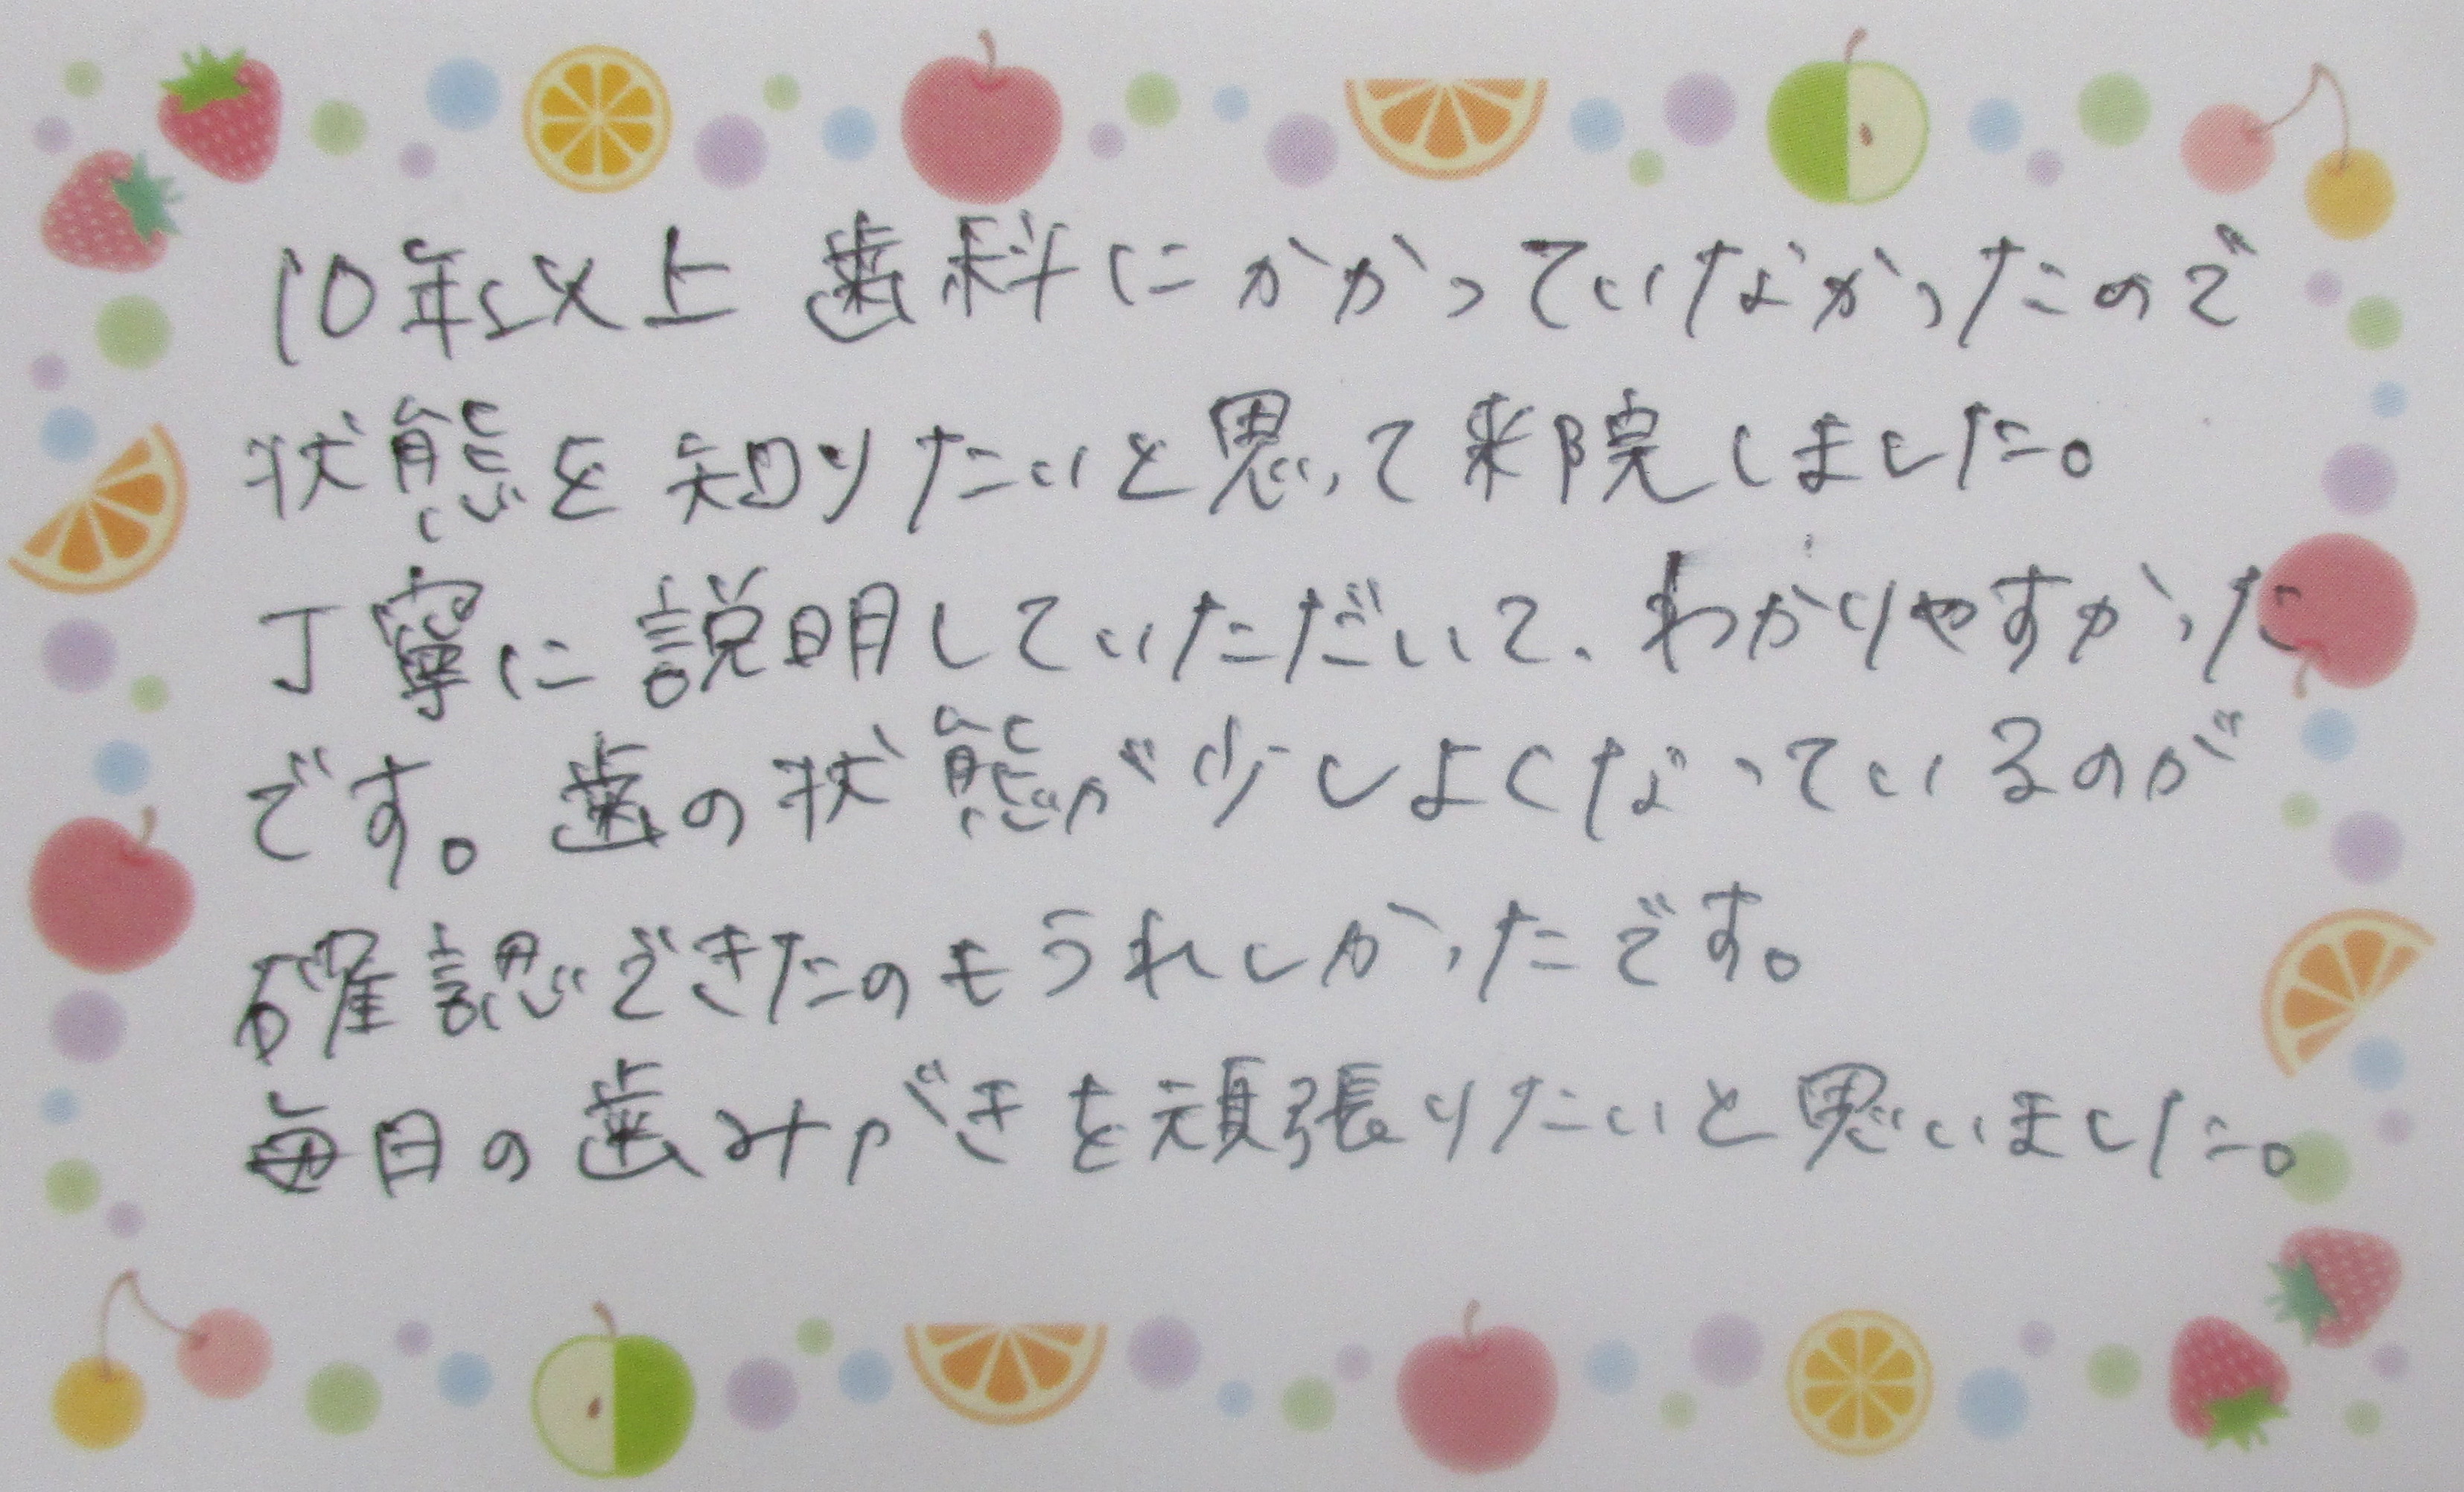 10年以上歯科にかかっていなかったので
状態を知りたいと思って来院しました。
丁寧に説明していただいて、わかりやすかった
です。歯の状態が少しよくなっているのが
確認できたのもうれしかったです。
毎日の歯みがきを頑張りたいと思いました。